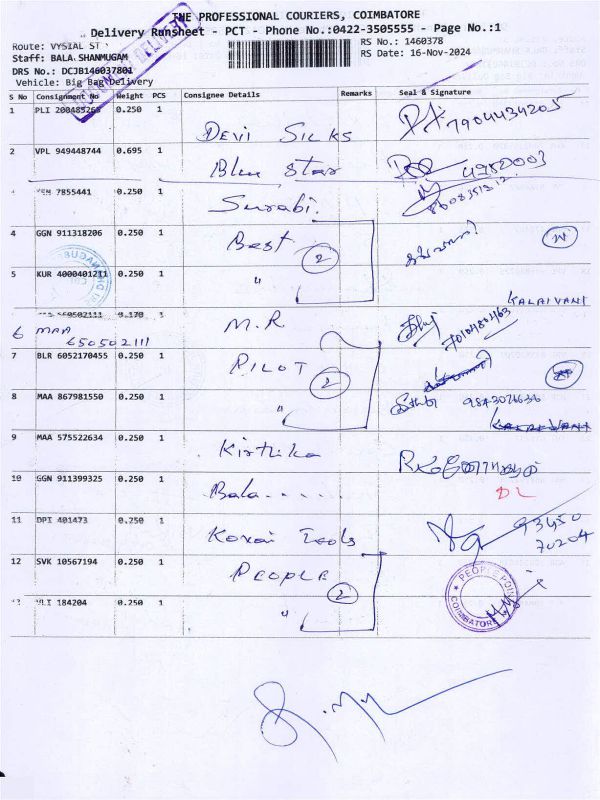 THE PROFESSIONAL COURIERS, COIMBATORE
Delivery Runsheet - PCT - Phone No.:0422-3505555 - Page No.:1
Route: VYSIAL ST
RS No.: 1460378
Staff: BALA SHANMUGAM
RS Date: 16-Nov-2024
DRS No.: DCJB146037801
Vehicle: Big Bag Delivery
S No Consignment No Weight PCS Consignee Details Remarks Seal & Signature
1 PLI 200485265 0.250 1 DEVI SILKS 7904434205
2 VPL 949448744 0.695 1 Blue Star 4982003
7855441 0.250 1 Surabi. 8608351212
4 GGN 911318206 0.250 1 Best 2
5 KUR 4000401211 0.250 1 "
KALAIVANI
660502111 0.170 1 M.R 7010480463
6 MAA 650502111
7 BLR 6052170455 0.250 1 PILOT 2
8 MAA 867981550 0.250 1 " 9843026636
KALAIVANI
9 MAA 575522634 0.250 1 Kirthika
10 GGN 911399325 0.250 1 Bala......
DL
11 DPI 401473 0.250 1 Kovai Tools 93450 70204
12 SVK 10567194 0.250 1 PEOPLE 2
PEOPLE POINT COIMBATORE
184204 0.250 1 "